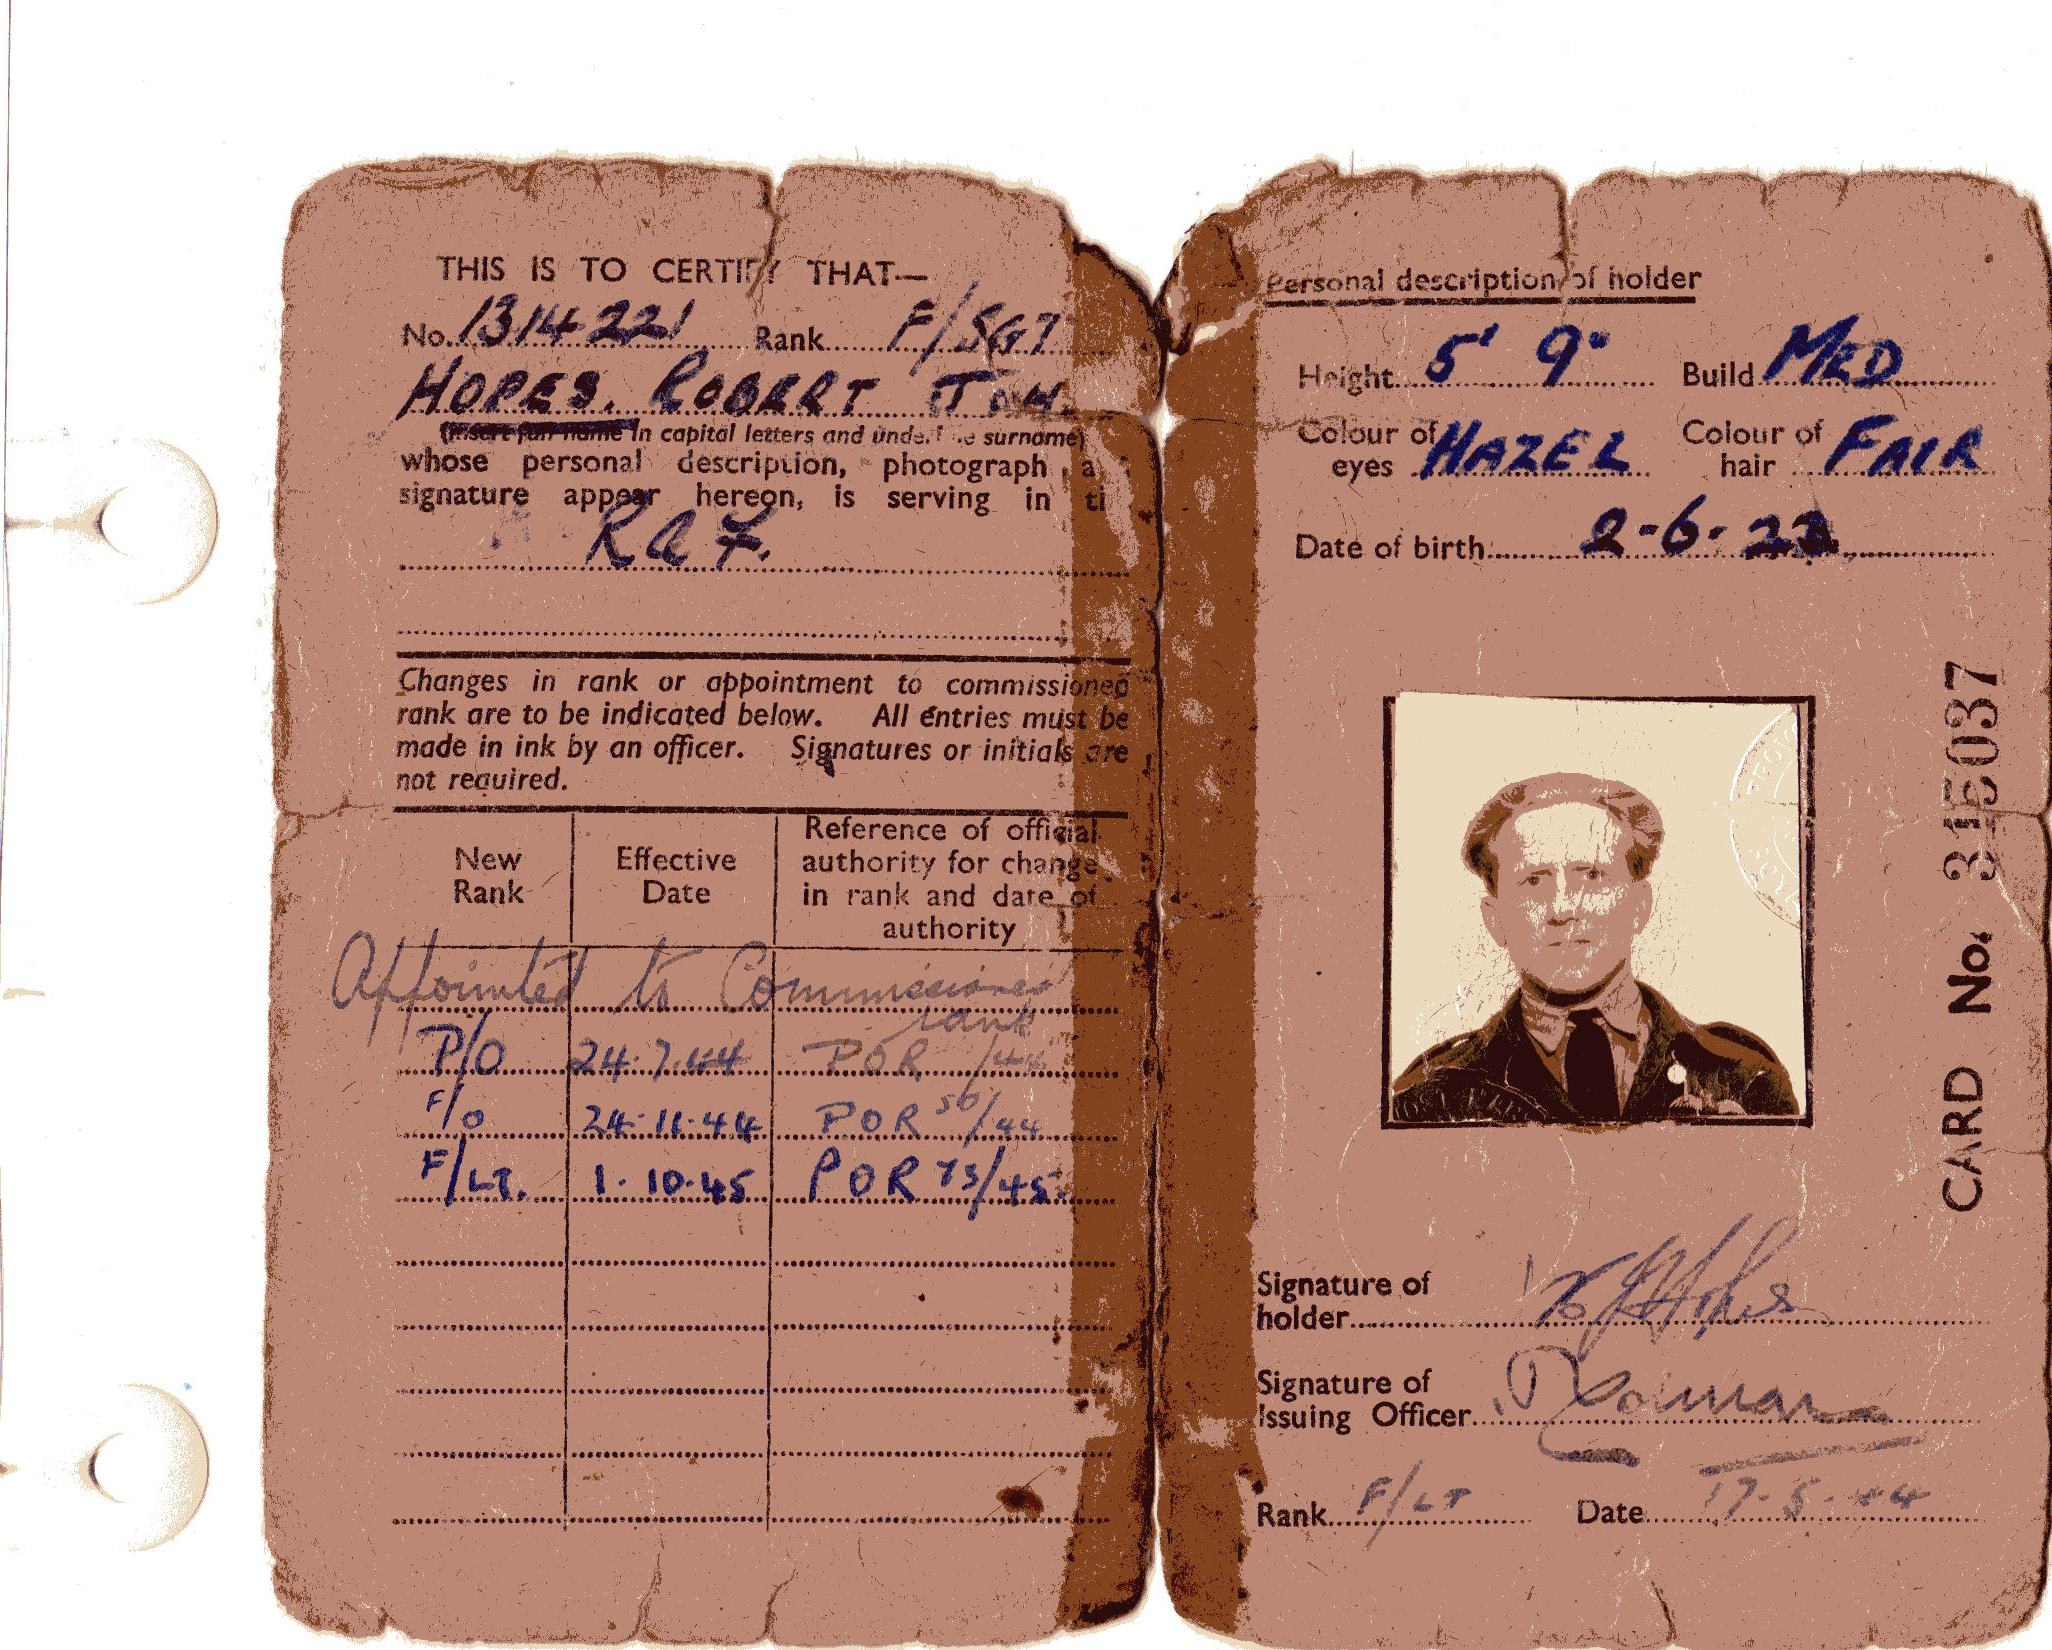 THIS IS TO CERTIFY THAT—
No. 1314221 Rank F/SGT
HOPES. ROBERT
(Insert full name in capital letters and underline surname)
whose personal description, photograph
signature appear hereon, is serving in
R A F.
Changes in rank or appointment to commissioned
rank are to be indicated below. All entries must be
made in ink by an officer. Signatures or initials are
not required.
New Rank
Effective Date
Reference of official authority for change in rank and date of authority
Appointed to Commissioned
rank
P/O 24.7.44 POR /44
F/O 24.11.44 POR 56/44
F/LT. 1.10.45 POR 73/45.
Personal description of holder
Height 5' 9" Build MED
Colour of eyes HAZEL Colour of hair FAIR
Date of birth 2-6-
CARD No. 315037
Signature of
holder R J Hopes
Signature of
Issuing Officer
Rank F/LT Date 17-5-44